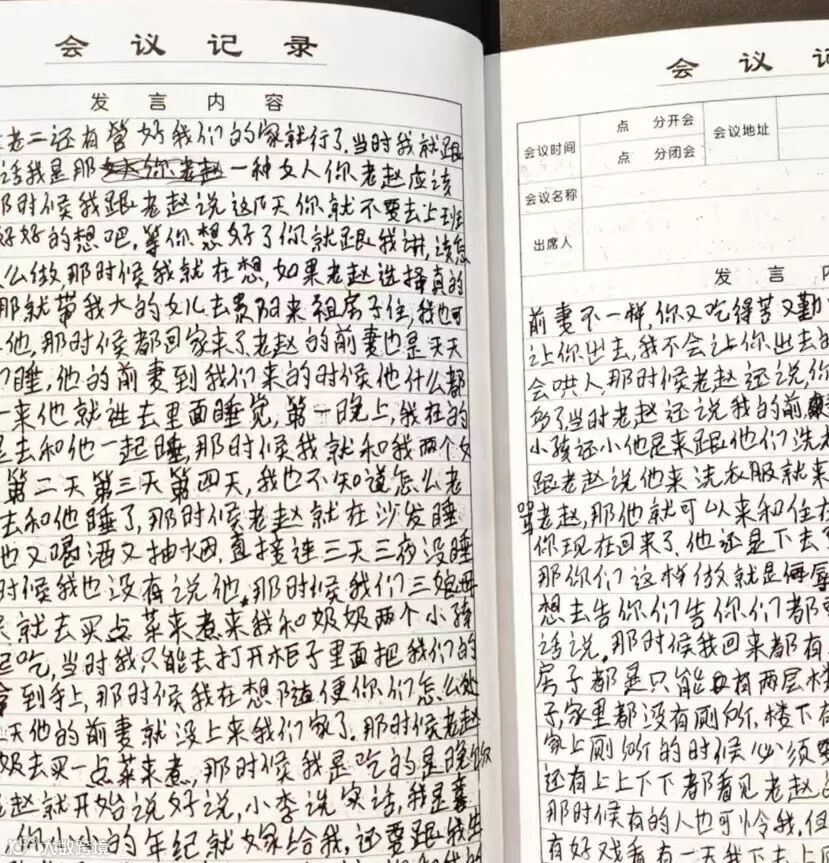 会议记录
发言内容
老二还有管好我们的家就行了,当时我就跟
话我是那 一种女人你老赵应该
那时候我跟老赵说这几天你就不要去上班
好好的想吧,等你想好了你就跟我讲,该怎
么做,那时候我就在想,如果老赵选择真的
那就带我大的女儿去贵阳来租房子住,我也可
他,那时候都回家来了,老赵的前妻也是天天
门睡,他的前妻到我们来的时候他什么都
一来他就进去里面睡觉,第一晚上,我在的
是去和他一起睡,那时候我就和我两个女
第二天第三天第四天,我也不知道怎么老
去和他睡了,那时候老赵就在沙发睡
他又喝酒又抽烟,直接连三天三夜没睡
时候我也没有说他,那时候我们三娘母
就去买点菜来煮来我和奶奶两个小孩
起吃,当时我只能去打开柜子里面把我们的
拿到手上,那时候我在想随便你们怎么处
天他的前妻就没上来我们家了,那时候老赵
奶去买一点菜来煮,那时候我是吃的是晚饭
赵就开始说好说,小李说实话,我是
你小小的年纪就嫁给我,还要跟我生
大数跨境
会议记
会议时间 点 分开会 会议地址
点 分闭会
会议名称
出席人
发言内
前妻不一样,你又吃得苦又勤
让你出去,我不会让你出去的
会哄人,那时候老赵还说,你
多了,当时老赵还说我的前
小孩还小他是来跟他们洗衣
跟老赵说他来洗衣服就来
骂老赵,那他就可以来和住在
你现在回来了,他还是下去
那你们这样做就是侮辱
想去告你们告你们都
话说,那时候我回来都有
房子都是只能 有两层楼
子,家里都没有厕所,楼下在
家上厕所的时候必须
还有上上下下都看见老赵
那时候有的人也可怜我,但
有好戏看有一天我下去